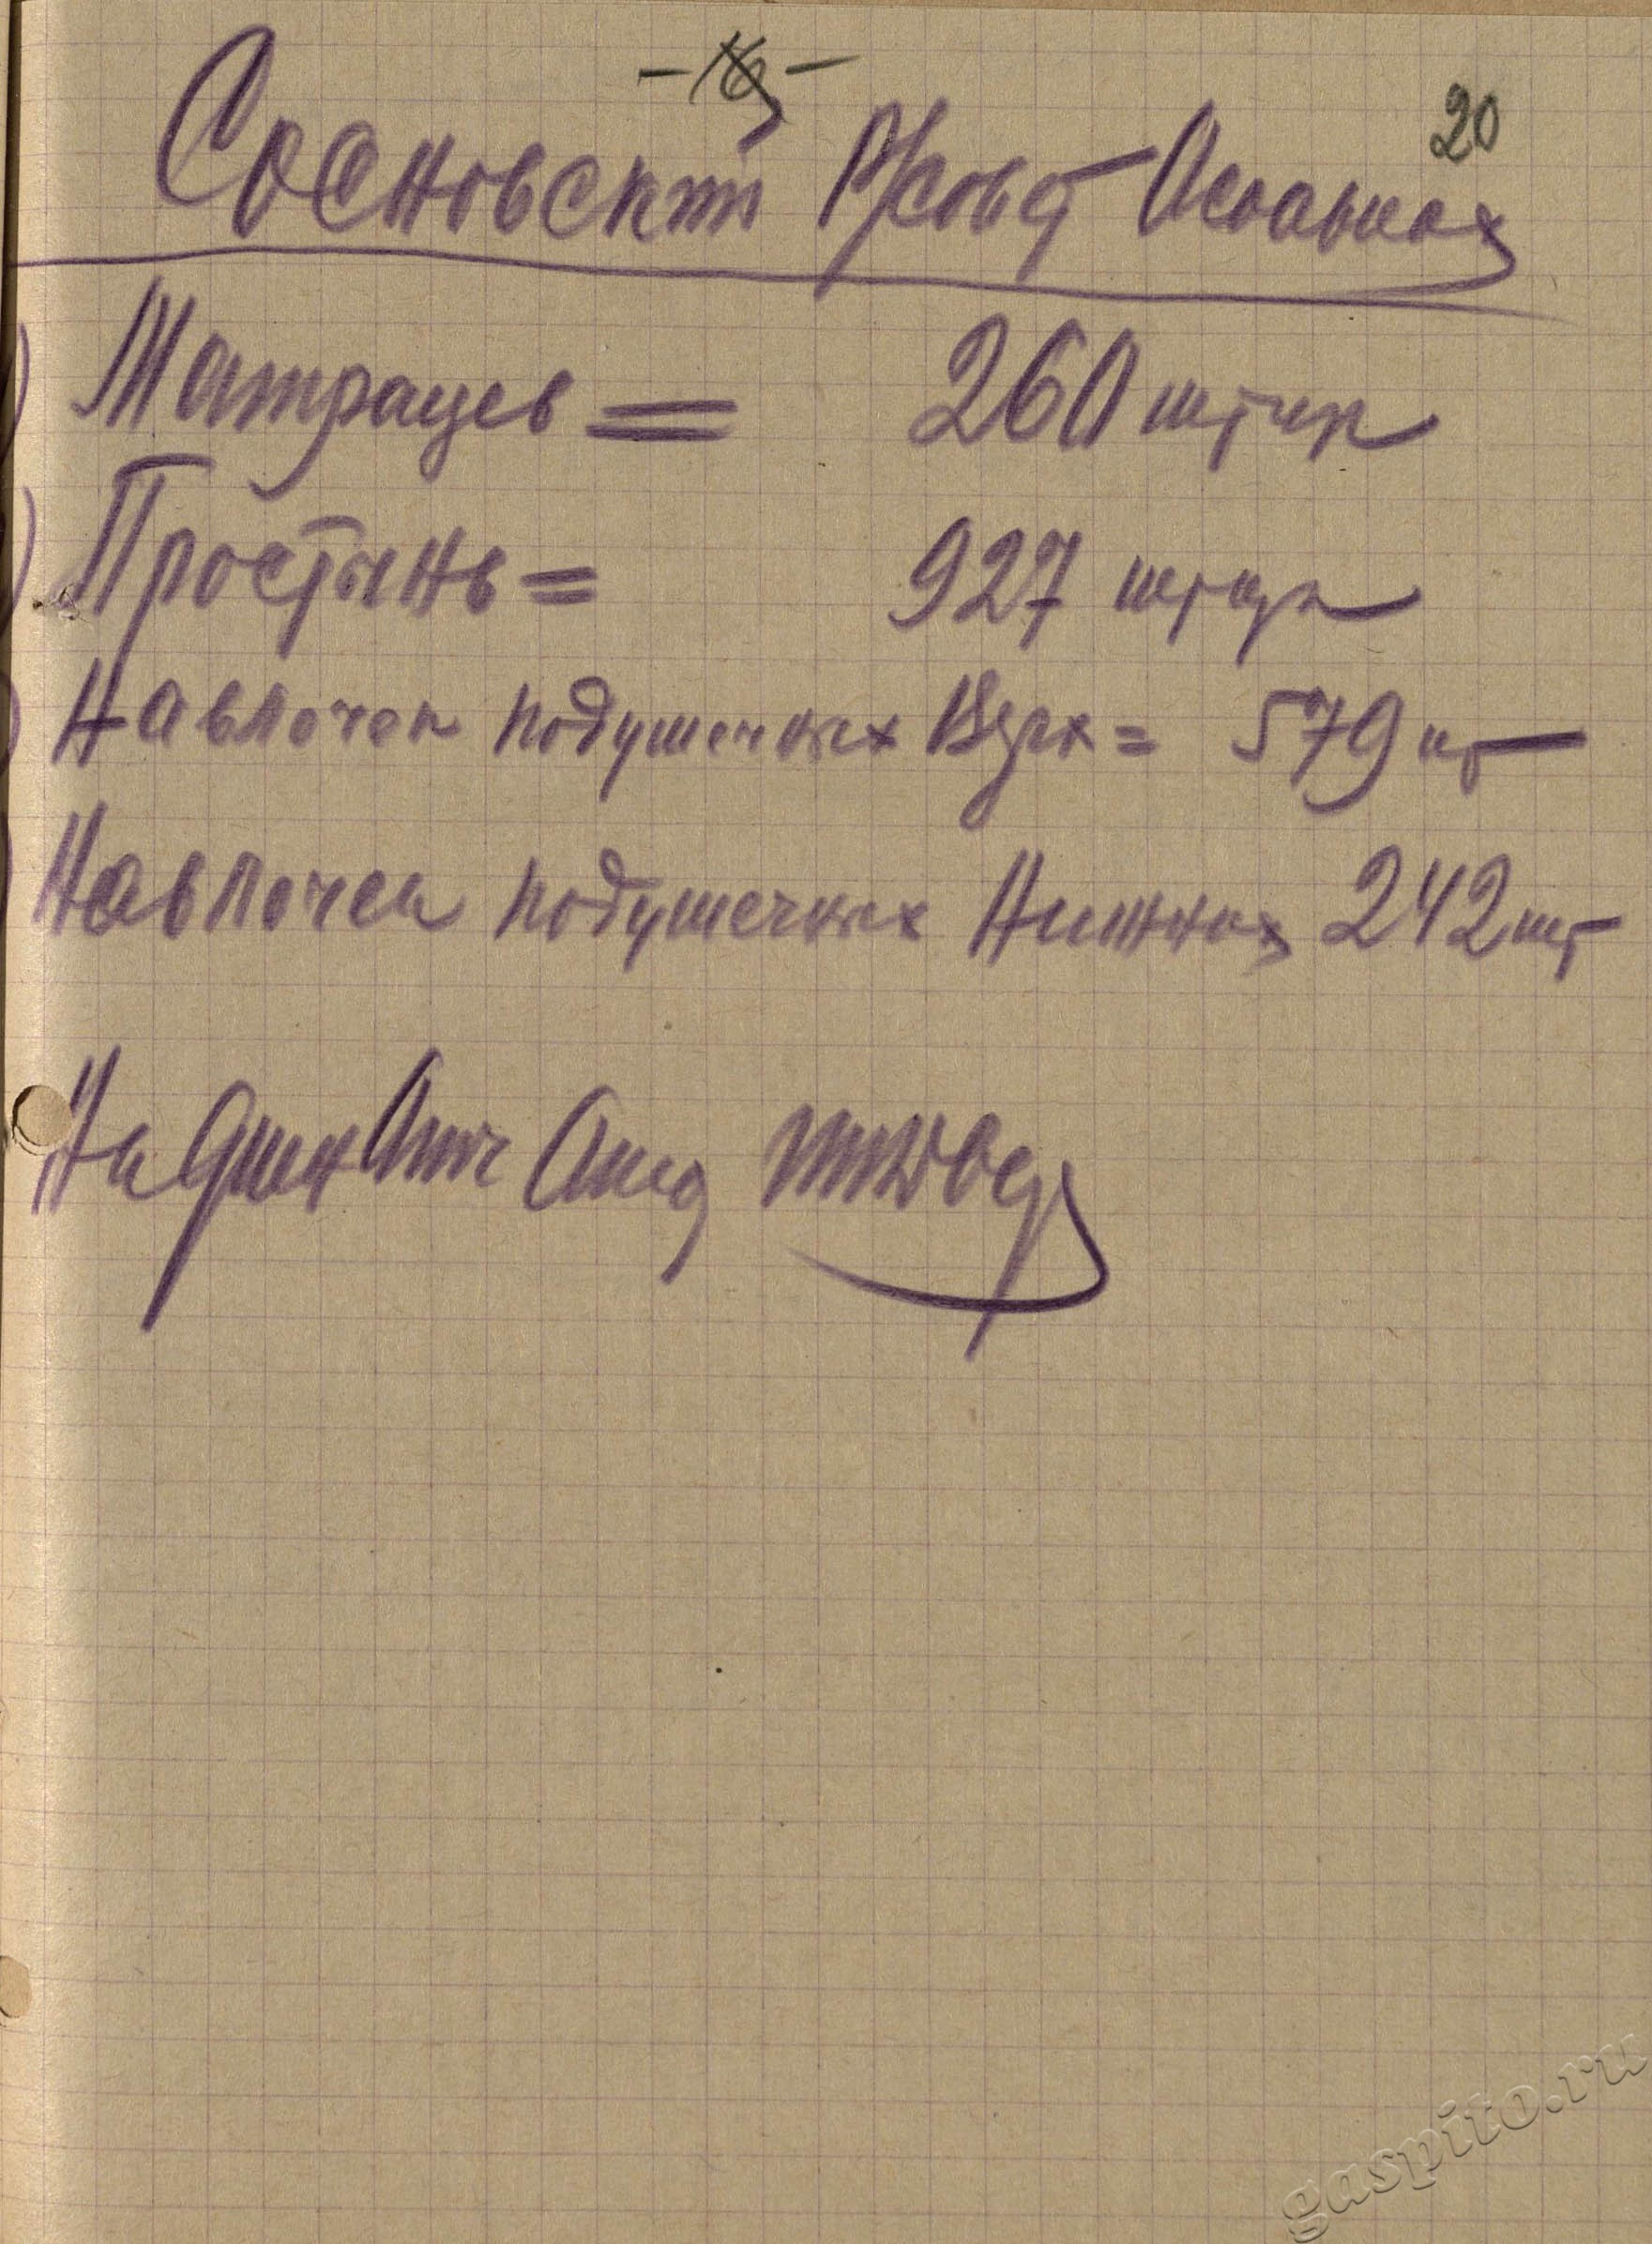 20
Сосновский
Матрацев = 260 штук
Простынь = 927 штук
Навлочек подушечных Верх = 579 шт
Навлочек подушечных Нижних 242 шт
gaspito.ru